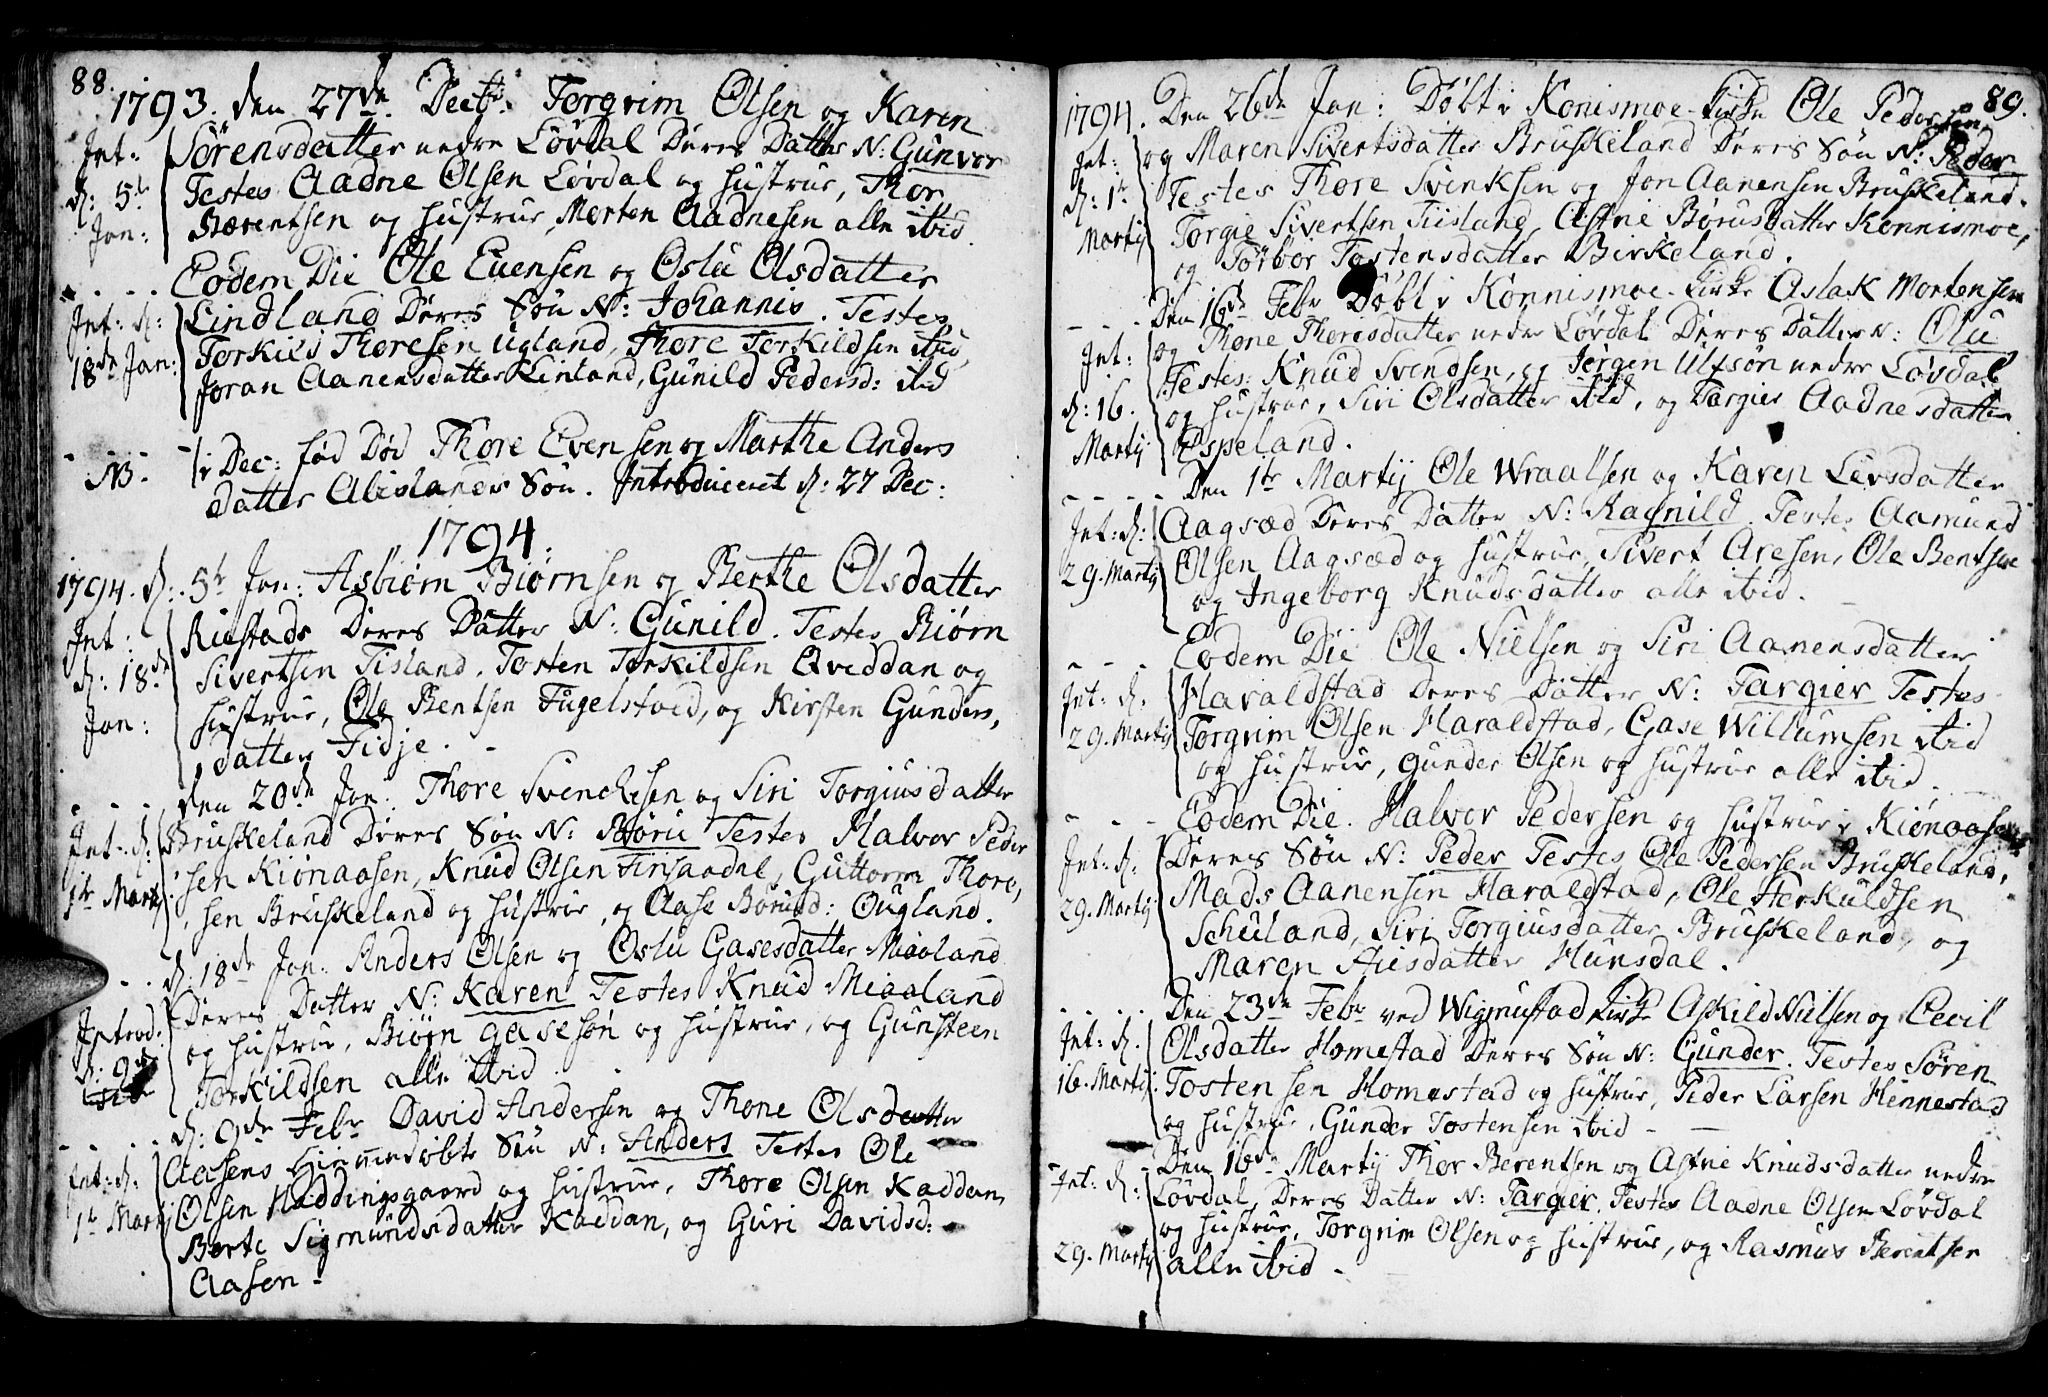 88.
1793. den 27de Decbr. Torgrim Olsen og Karen
Int: Sörensdatter nedre Lövdal Deres Datter N: Gunvor
d: 5te Testes Aadne Olsen Lövdal og Hustrue, Thor
Jan: Bærentsen og Hustrue, Morten Aadnesen alle ibid.
Eodem Die Ole Evensen og Oslu Olsdatter
Int: d: Lindland Deres Sön N: Johannis. Testes
18de Jan: Torkild Thoresen Ugland, Thore Torkildsen ibid,
Joran Aanensdatter Linland, Gunild Pedersd: ibid
NB. i Dec: fød Død Thore Evensen og Marthe Anders
Datter Abelands Sön. Introduceret d: 27 Dec:
1794.
1794. d: 5te Jan: Asbiörn Biörnsen og Berthe Olsdatter
Int: Riestads Deres Datter N: Gunild. Testes Biörn
d: 18de Sivertsen Tisland. Tosten Torkildsen Qveddan og
Jan: Hustrue, Ole Bentsen Fugelstved, og Kirsten Gunders,
datter Fidje.
den 20de Jan: Thore Svenchsen og Siri Torgiusdatter
Int: d: Bruskeland Deres Sön N: Böru Testes Halvor Peder
1te Martij sen Kiönaasen, Knud Olsen Finsaadal, Guttorm Thore,
sen Bruskeland og Hustrue, og Aase Börusd: Ougland.
d: 18de Jan: Anders Olsen og Oslu Gasesdatter Miaaland
Introd: Deres Datter N: Karen Testes Knud Miaaland
d: 9de og Hustrue, Biörn Gasesön og Hustrue, og Gunsteen
Torkildsen alle ibid.
d: 9de Febr David Andersen og Thone Olsdatter
Int: d: Aasens Hiemmedöbte Sön N: Anders Testes Ole
1te Martij Olsen Haddingsgaard og Hustrue, Thore Olsen Kaddan,
Berte Sigmundsdatter Kaddan, og Guri Davidsd:
Aasen.
89.
1794. Den 26de Jan: Döbt i Konismoe Kirke Ole Pedersen
Int: og Maren Sivertsdatter Bruskeland Deres Sön N: Peder
d: 1te Testes Thore Svenksen og Jon Aanensen Bruskeland.
Martij Torgie Sivertsen Tiisland, Astrie Börusdatter Konnismoe,
og Torbor Tostensdatter Birkeland.
Den 16de Febr Döbt i Konnismoe Kirke Aslak Mortensen
Int: og Thone Thoresdatter nedre Lövdal Deres Datter N: Olu
d: 16. Testes: Knud Svendsen, og Jörgen Ulfsön nedre Lövdal
Martij og Hustrue, Siri Olsdatter ibid, og Targier Aadnesdatter
Espeland.
Den 1te Martij Ole Wraalsen og Karen Levsdatter
Int: d: Aagsæd Deres Datter N: Ragnild. Testes Aamund
29. Martij Olsen Aagsæd og Hustrue, Sivert Aresen, Ole Bentsen
og Ingeborg Knudsdatter alle ibid.
Eodem Die Ole Nielsen og Siri Aanensdatter
Int: d. Haraldstad Deres Datter N: Targier Testes
29. Martij Torgrim Olsen Haraldstad, Gase Willumsen ibid
og Hustrue, Gunder Olsen og Hustrue alle ibid.
Eodem Die. Halvor Pedersen og Hustrue i Kiönaasen
Int: d. Deres Sön N: Peder Testes Ole Pedersen Bruskeland,
29. Martij Mads Aanensen Haraldstad, Ole Terkuldsen
Schuland, Siri Torgiusdatter Bruskeland, og
Maren Aiesdatter Hunsdal.
Den 23de Febr ved Wigmustad Kirke Askild Nielsen og Cecil
Int: d. Olsdatter Homestad Deres Sön N: Gunder. Testes Sören
16. Martij. Tostensen Homestad og Hustrue, Peder Larsen Hennestad
og Hustrue, Gunder Tostensen ibid
Den 16de Martij Thor Berentsen og Astrie Knudsdatter nedre
Int: d: Lövdal, Deres Datter N: Targier. Testes Aadne Olsen Lövdal
og Hustrue, Torgrim Olsen og Hustrue, og Rasmus Berentsen
29. Martij alle ibid.